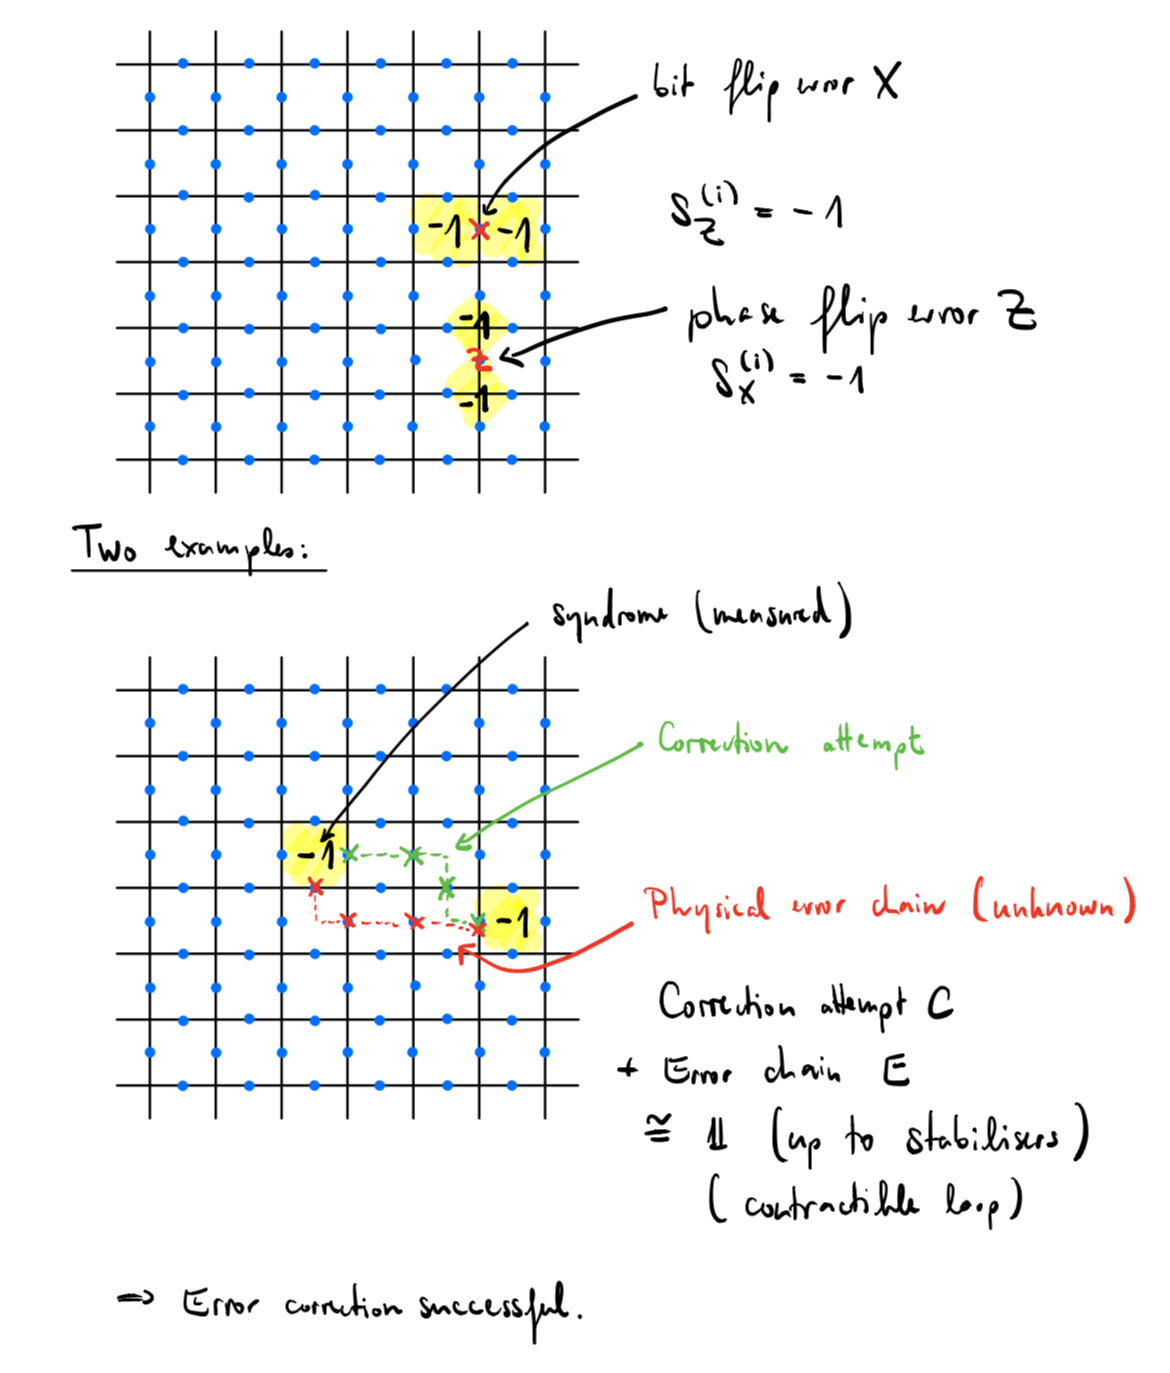 bit flip error X
-1 X -1
S_Z^(i) = -1
-1
phase flip error Z
Z
S_X^(i) = -1
-1
Two examples:
syndrome (measured)
Correction attempt
-1
Physical error chain (unknown)
-1
Correction attempt C
+ Error chain E
≅ 𝟙 (up to stabilisers)
(contractible loop)
⇒ Error correction successful.